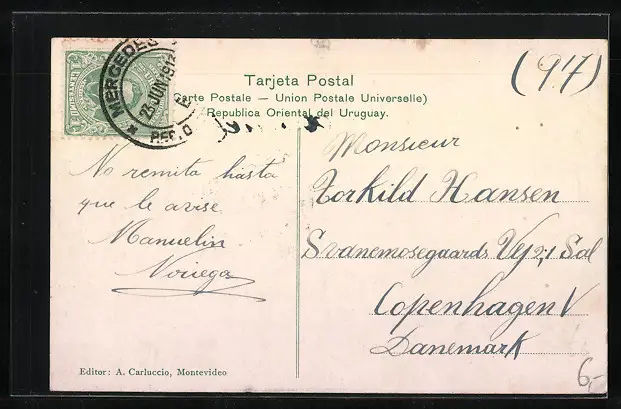 MERCEDES
23 JUN 1912
(97)
Tarjeta Postal
(Carte Postale — Union Postale Universelle)
Republica Oriental del Uruguay.
No remita hasta
que le avise
Manuelin
Noriega
Monsieur
Torkild Hansen
Svanemosegaards Vej 2,1 Sal
Copenhagen V
Danemark
Editor: A. Carluccio, Montevideo
6,-